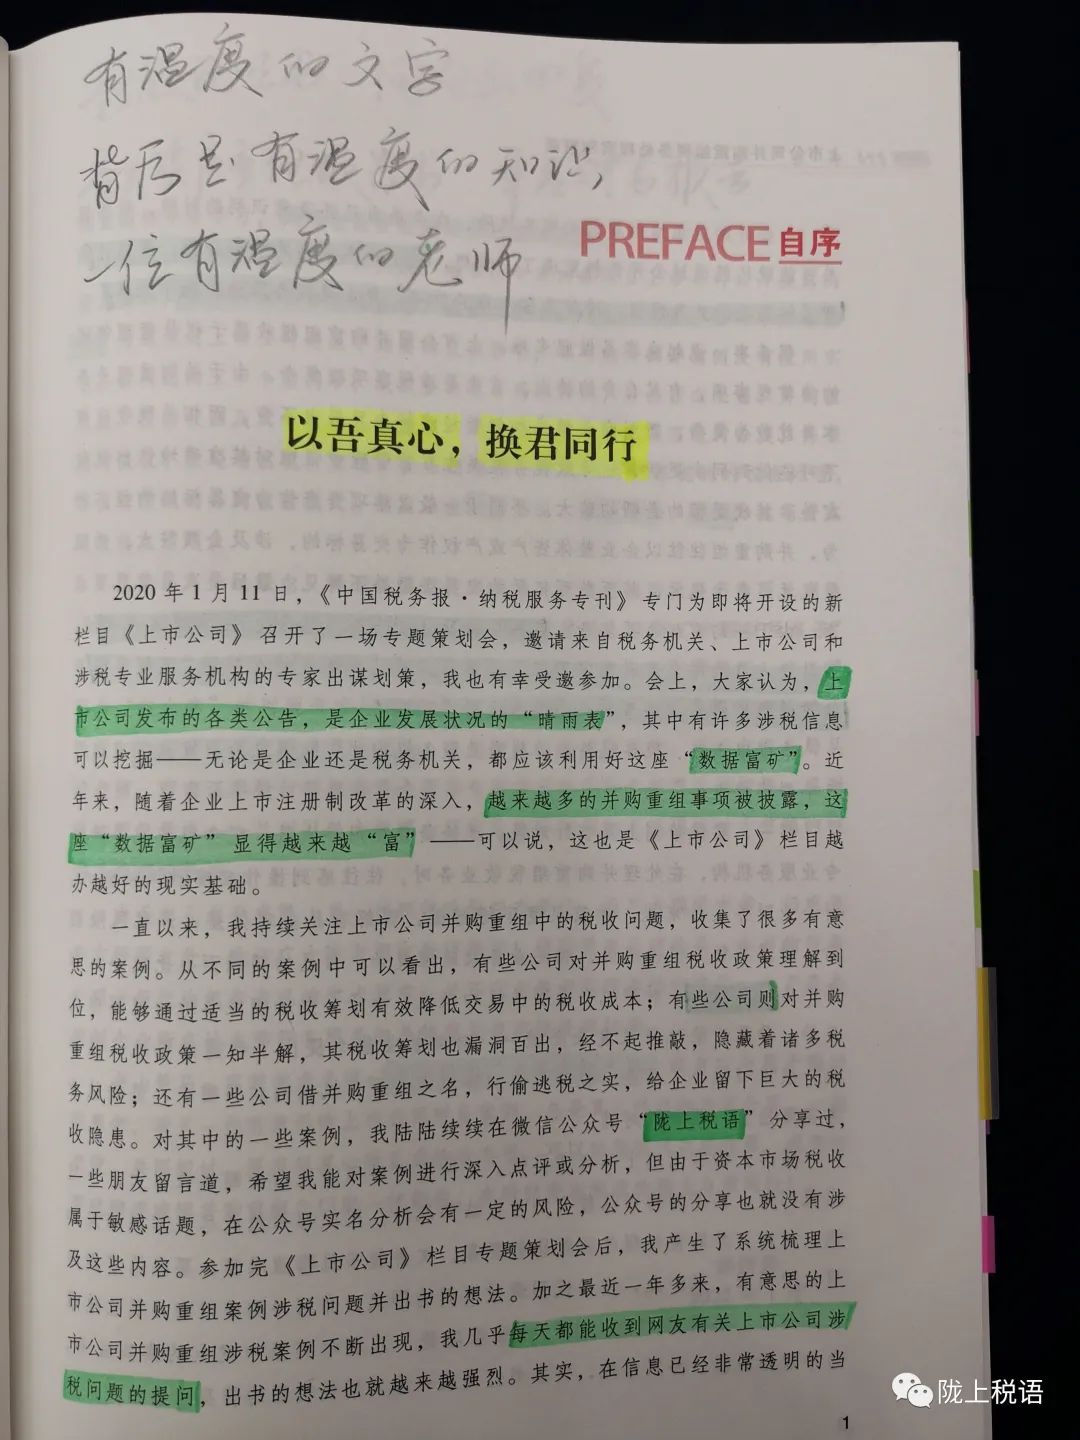 有温度的文字
背后是有温度的知识,
一位有温度的老师
PREFACE 自序
以吾真心，换君同行
2020 年 1 月 11 日，《中国税务报·纳税服务专刊》专门为即将开设的新
栏目《上市公司》召开了一场专题策划会，邀请来自税务机关、上市公司和
涉税专业服务机构的专家出谋划策，我也有幸受邀参加。会上，大家认为，上
市公司发布的各类公告，是企业发展状况的“晴雨表”，其中有许多涉税信息
可以挖掘——无论是企业还是税务机关，都应该利用好这座“数据富矿”。近
年来，随着企业上市注册制改革的深入，越来越多的并购重组事项被披露，这
座“数据富矿”显得越来越“富”——可以说，这也是《上市公司》栏目越
办越好的现实基础。
一直以来，我持续关注上市公司并购重组中的税收问题，收集了很多有意
思的案例。从不同的案例中可以看出，有些公司对并购重组税收政策理解到
位，能够通过适当的税收筹划有效降低交易中的税收成本；有些公司则对并购
重组税收政策一知半解，其税收筹划也漏洞百出，经不起推敲，隐藏着诸多税
务风险；还有一些公司借并购重组之名，行偷逃税之实，给企业留下巨大的税
收隐患。对其中的一些案例，我陆陆续续在微信公众号“陇上税语”分享过，
一些朋友留言道，希望我能对案例进行深入点评或分析，但由于资本市场税收
属于敏感话题，在公众号实名分析会有一定的风险，公众号的分享也就没有涉
及这些内容。参加完《上市公司》栏目专题策划会后，我产生了系统梳理上
市公司并购重组案例涉税问题并出书的想法。加之最近一年多来，有意思的上
市公司并购重组涉税案例不断出现，我几乎每天都能收到网友有关上市公司涉
税问题的提问，出书的想法也就越来越强烈。其实，在信息已经非常透明的当
1
陇上税语